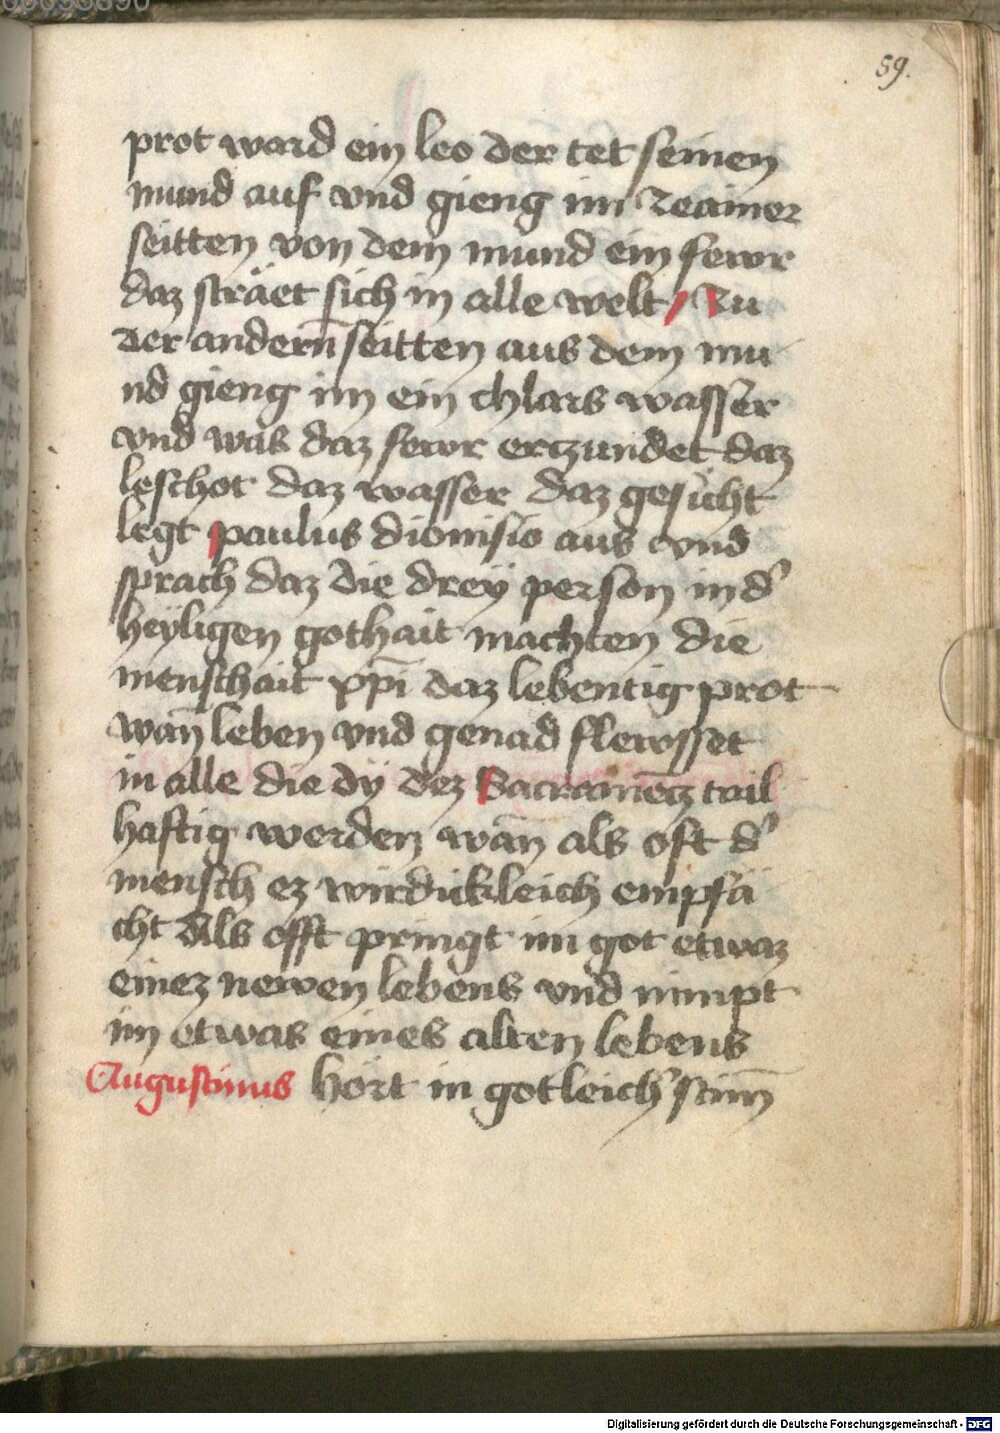 59.
prot ward ein leo der tet seinen
mund auf vnd gieng im ze ainer
seitten von dem mund ein fewr
daz sträet sich in alle welt / Zu
der andern̄ seitten aus dem mu
nd gieng im ein chlars wasser
vnd was daz fewr erczundet daz
leschot daz wasser daz gesicht
legt paulus dionisio aus vnd
sprach daz die dreÿ person in d'
heÿligen gothait machten die
menschait xp̄i daz lebentig prot
wan̄ leben vnd genad flewsset
in alle die dÿ dez Sacramēcz tail
haftig werden wān als oft d'
mensch ez wirdickleich empfa
cht Als offt pringt im got etwaz
einez newen lebens vnd nimpt
im etwas eines alten lebens
Augustinus hort in gotleich' stim̄
Digitalisierung gefördert durch die Deutsche Forschungsgemeinschaft - DFG